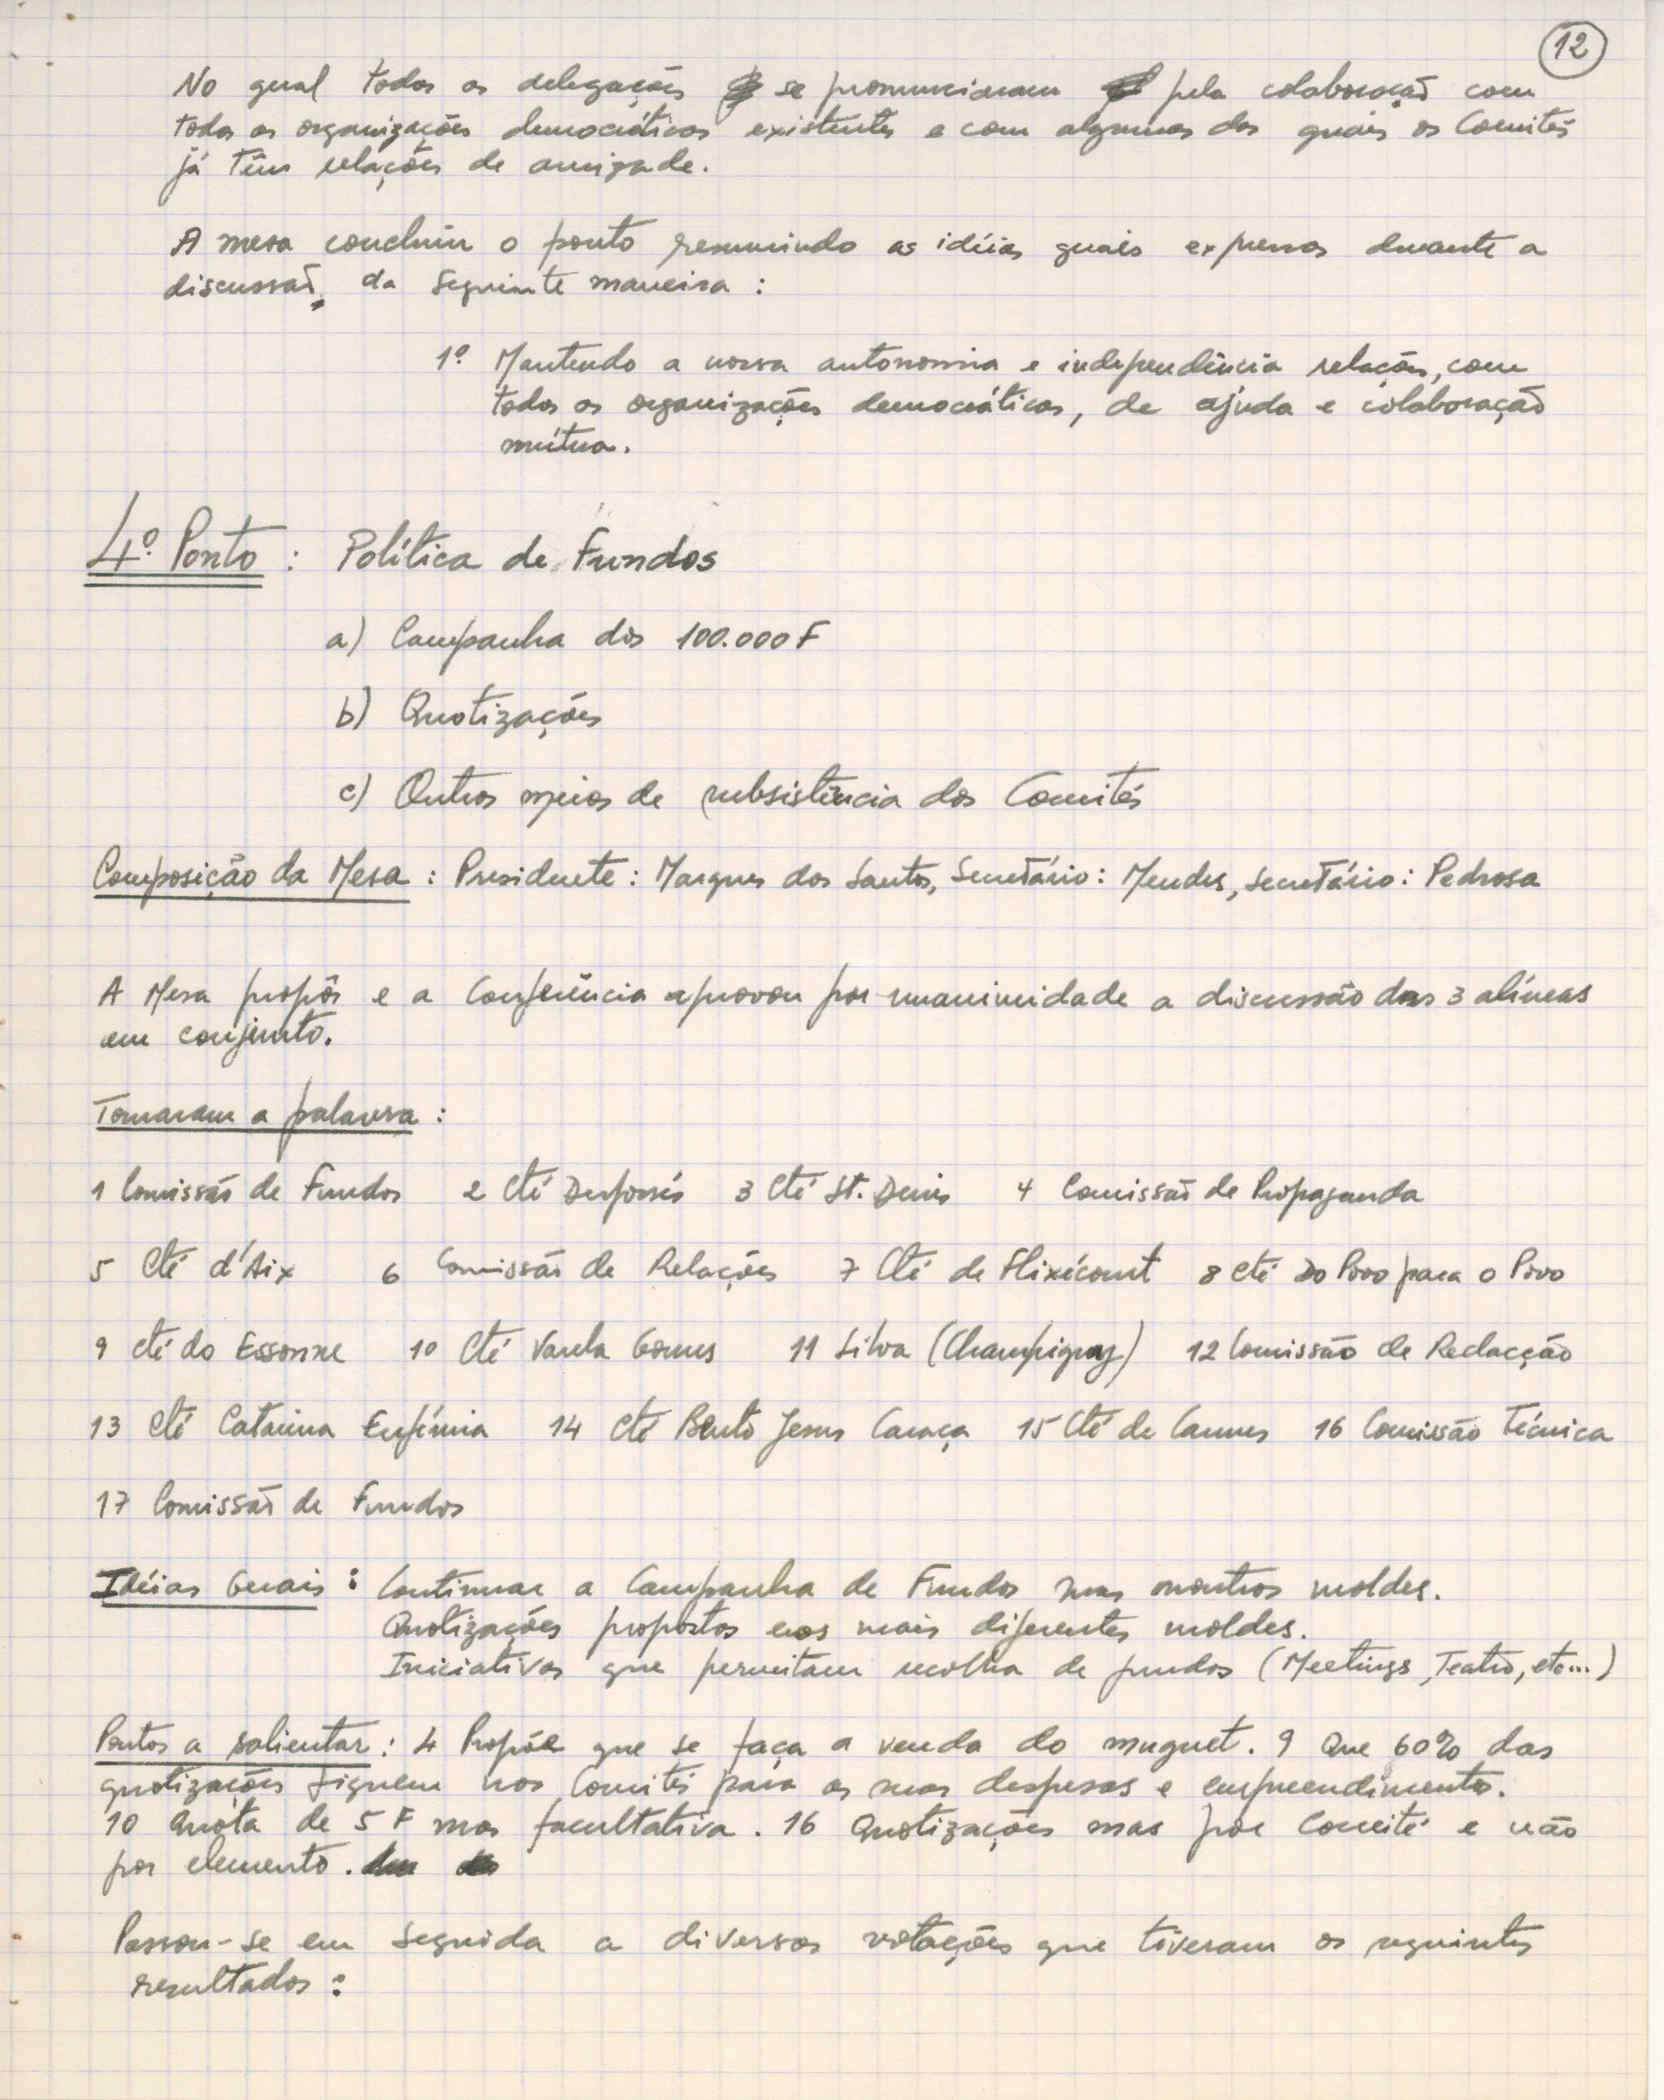 12
No qual todas as delegações se pronunciaram pela colaboração com
todas as organizações democráticas existentes e com algumas das quais os Comités
já têm relações de amizade.
A mesa concluiu o ponto resumindo as idéias gerais expressas durante a
discussão, da seguinte maneira :
1º Mantendo a nossa autonomia e independência relações, com
todas as organizações democráticas, de ajuda e colaboração
mútua.
4º Ponto : Política de Fundos
a) Campanha dos 100.000 F
b) Quotizações
c) Outros meios de subsistência dos Comités
Composição da Mesa : Presidente : Marques dos Santos, Secretário : Mendes, Secretário : Pedrosa
A Mesa propôs e a Conferência aprovou por unanimidade a discussão das 3 alíneas
em conjunto.
Tomaram a palavra :
1 Comissão de Fundos 2 Cté Desforrés 3 Cté St. Denis 4 Comissão de Propaganda
5 Cté d'Aix 6 Comissão de Relações 7 Cté de Flixécourt 8 Cté Do Povo para o Povo
9 Cté do Essonne 10 Cté Varela Gomes 11 Silva (Champigny) 12 Comissão de Redacção
13 Cté Catarina Eufémia 14 Cté Bento Jesus Caraça 15 Cté de Cannes 16 Comissão Técnica
17 Comissão de Fundos
Idéias Gerais : Continuar a Campanha de Fundos mas noutros moldes.
Quotizações propostas nos mais diferentes moldes.
Iniciativas que permitam recolha de fundos (Meetings, Teatro, etc...)
Pontos a salientar : 4 Propõe que se faça a venda do muguet. 9 Que 60% das
quotizações fiquem nos Comités para as suas despesas e empreendimentos.
10 Quota de 5 F mas facultativa. 16 Quotizações mas por Comité e não
por elemento.
Passou-se em seguida a diversas votações que tiveram os seguintes
resultados :